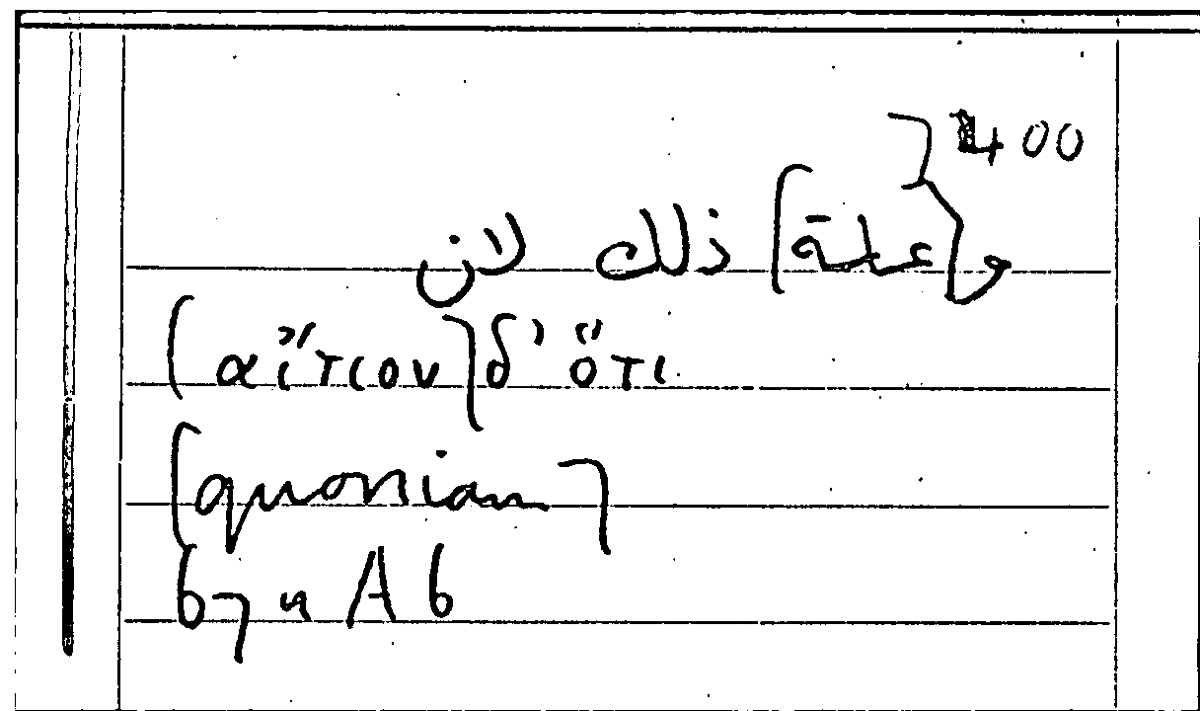 ⌉400
و⌊علة⌉ ذلك لان
⌈αἴτιον⌉ δ' ὅτι
⌈quoniam⌉
b⌉ u A b